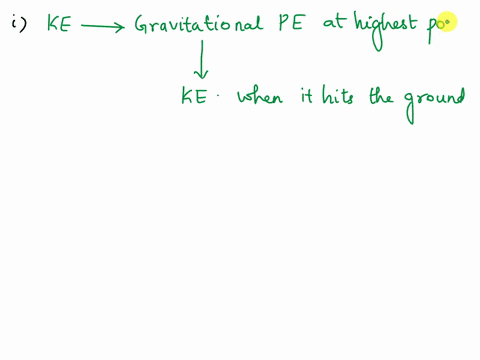 i) KE → Gravitational PE at highest po
↓
KE. when it hits the ground